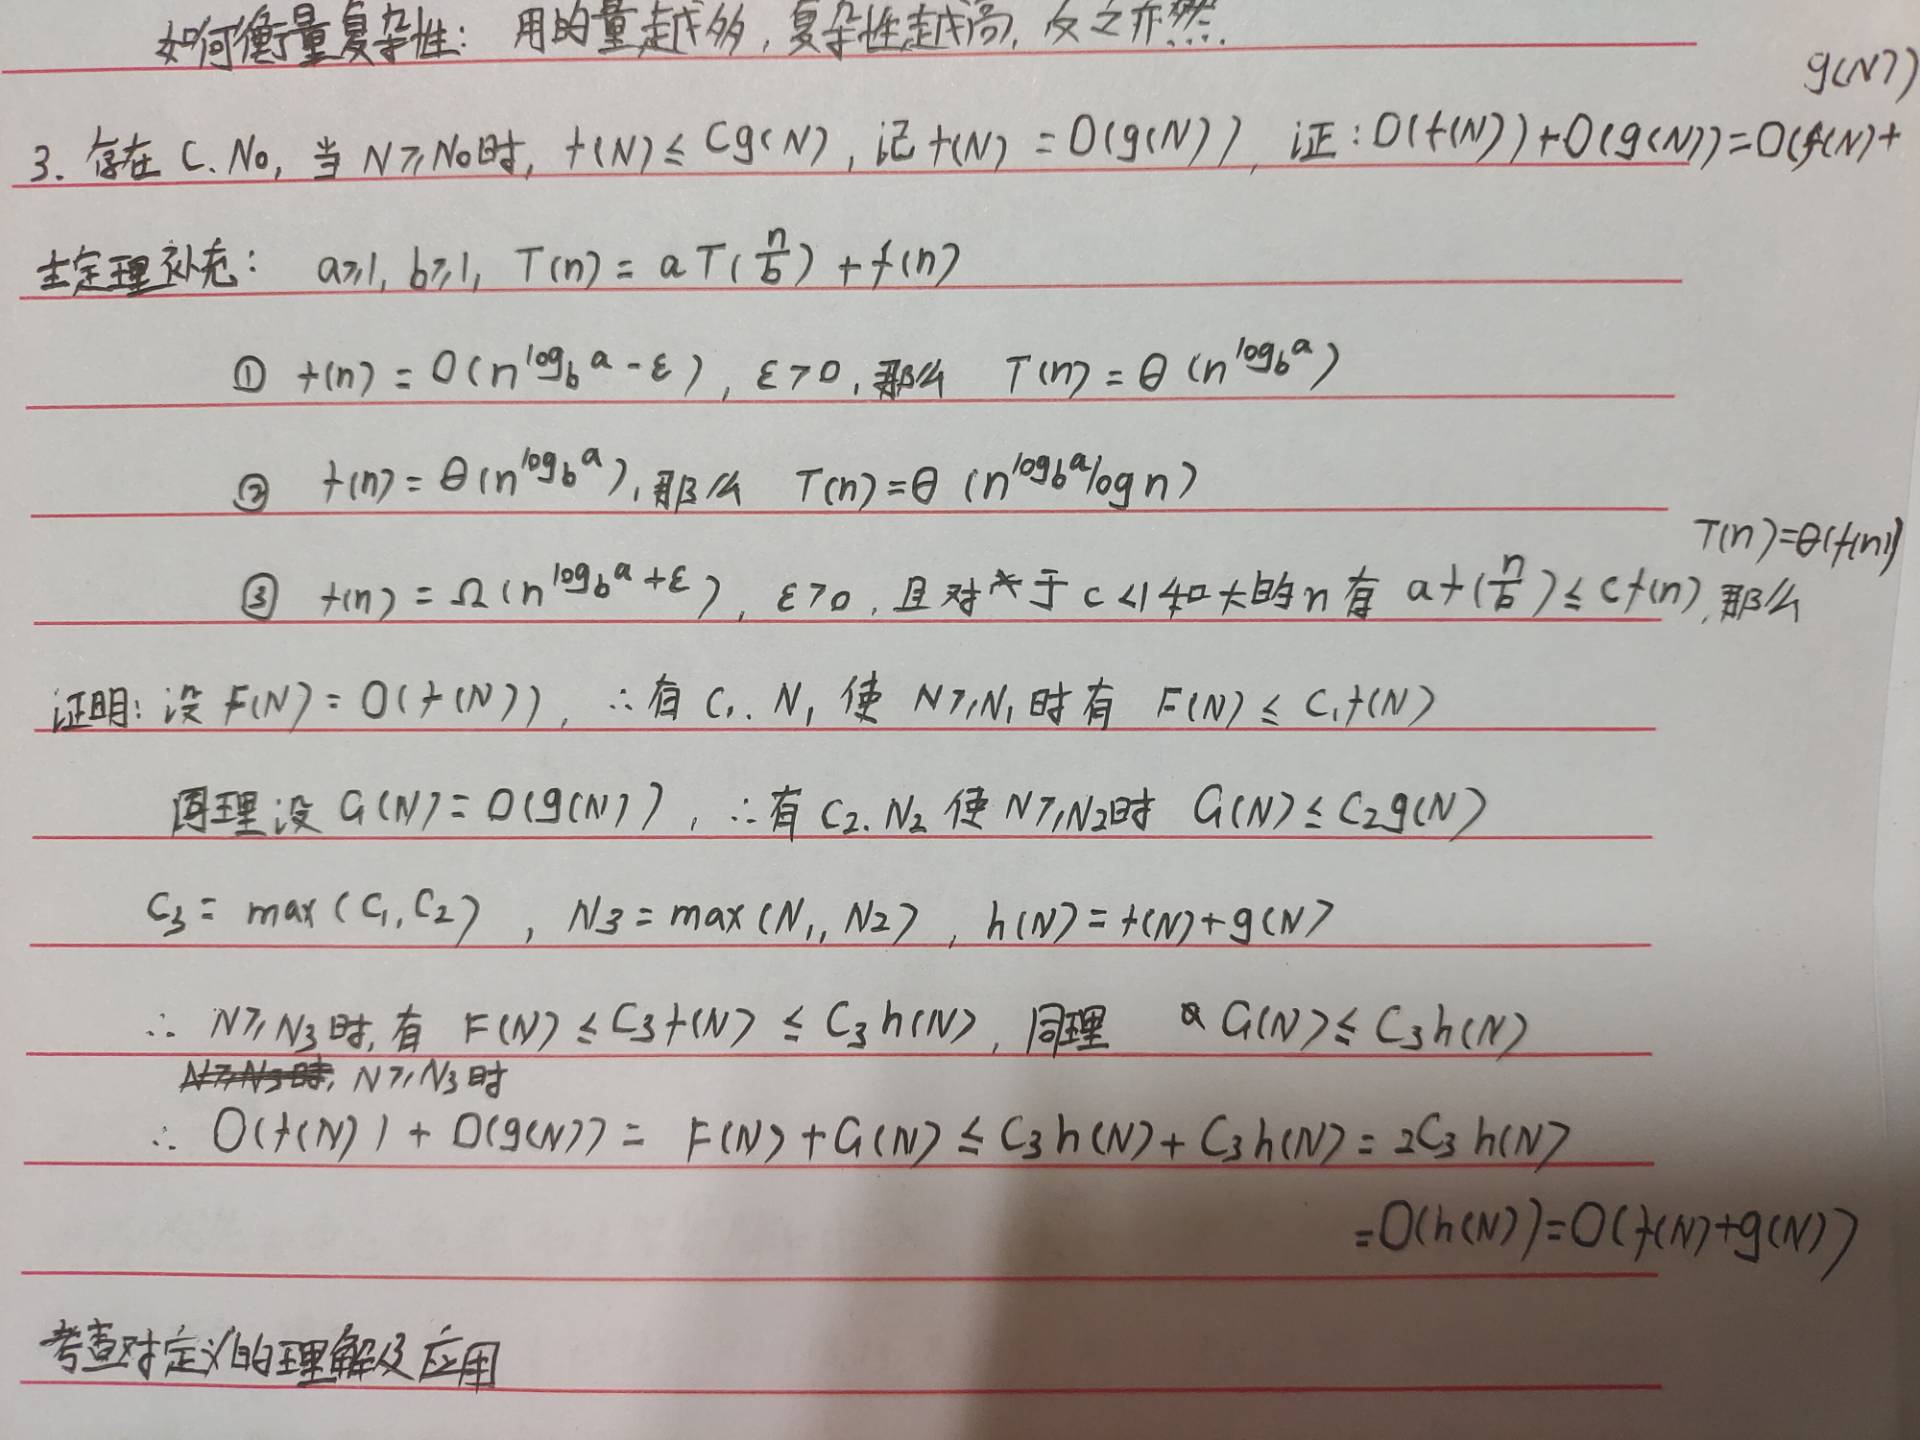 如何衡量复杂性：用的量越多，复杂性越高，反之亦然.
3. 存在 C. N₀, 当 N≥N₀时, f(N)≤Cg(N), 记 f(N)=O(g(N)), 证：O(f(N))+O(g(N))=O(f(N)+g(N))
主定理补充： a≥1, b≥1, T(n)=aT(n/b)+f(n)
① f(n)=O(n^{log_b a-ε}), ε>0, 那么 T(n)=θ(n^{log_b a})
② f(n)=θ(n^{log_b a}), 那么 T(n)=θ(n^{log_b a}logn)
③ f(n)=Ω(n^{log_b a+ε}), ε>0, 且对于 c<1和大的n有 af(n/b)≤cf(n), 那么 T(n)=θ(f(n))
证明：设 F(N)=O(f(N)), ∴有 C₁. N₁ 使 N≥N₁时有 F(N)≤C₁f(N)
同理设 G(N)=O(g(N)), ∴有 C₂. N₂ 使 N≥N₂时 G(N)≤C₂g(N)
C₃=max(C₁,C₂), N₃=max(N₁,N₂), h(N)=f(N)+g(N)
∴ N≥N₃时,有 F(N)≤C₃f(N)≤C₃h(N), 同理 G(N)≤C₃h(N)
N≥N₃时, N≥N₃时
∴ O(f(N))+O(g(N))=F(N)+G(N)≤C₃h(N)+C₃h(N)=2C₃h(N)
=O(h(N))=O(f(N)+g(N))
考查对定义的理解及应用